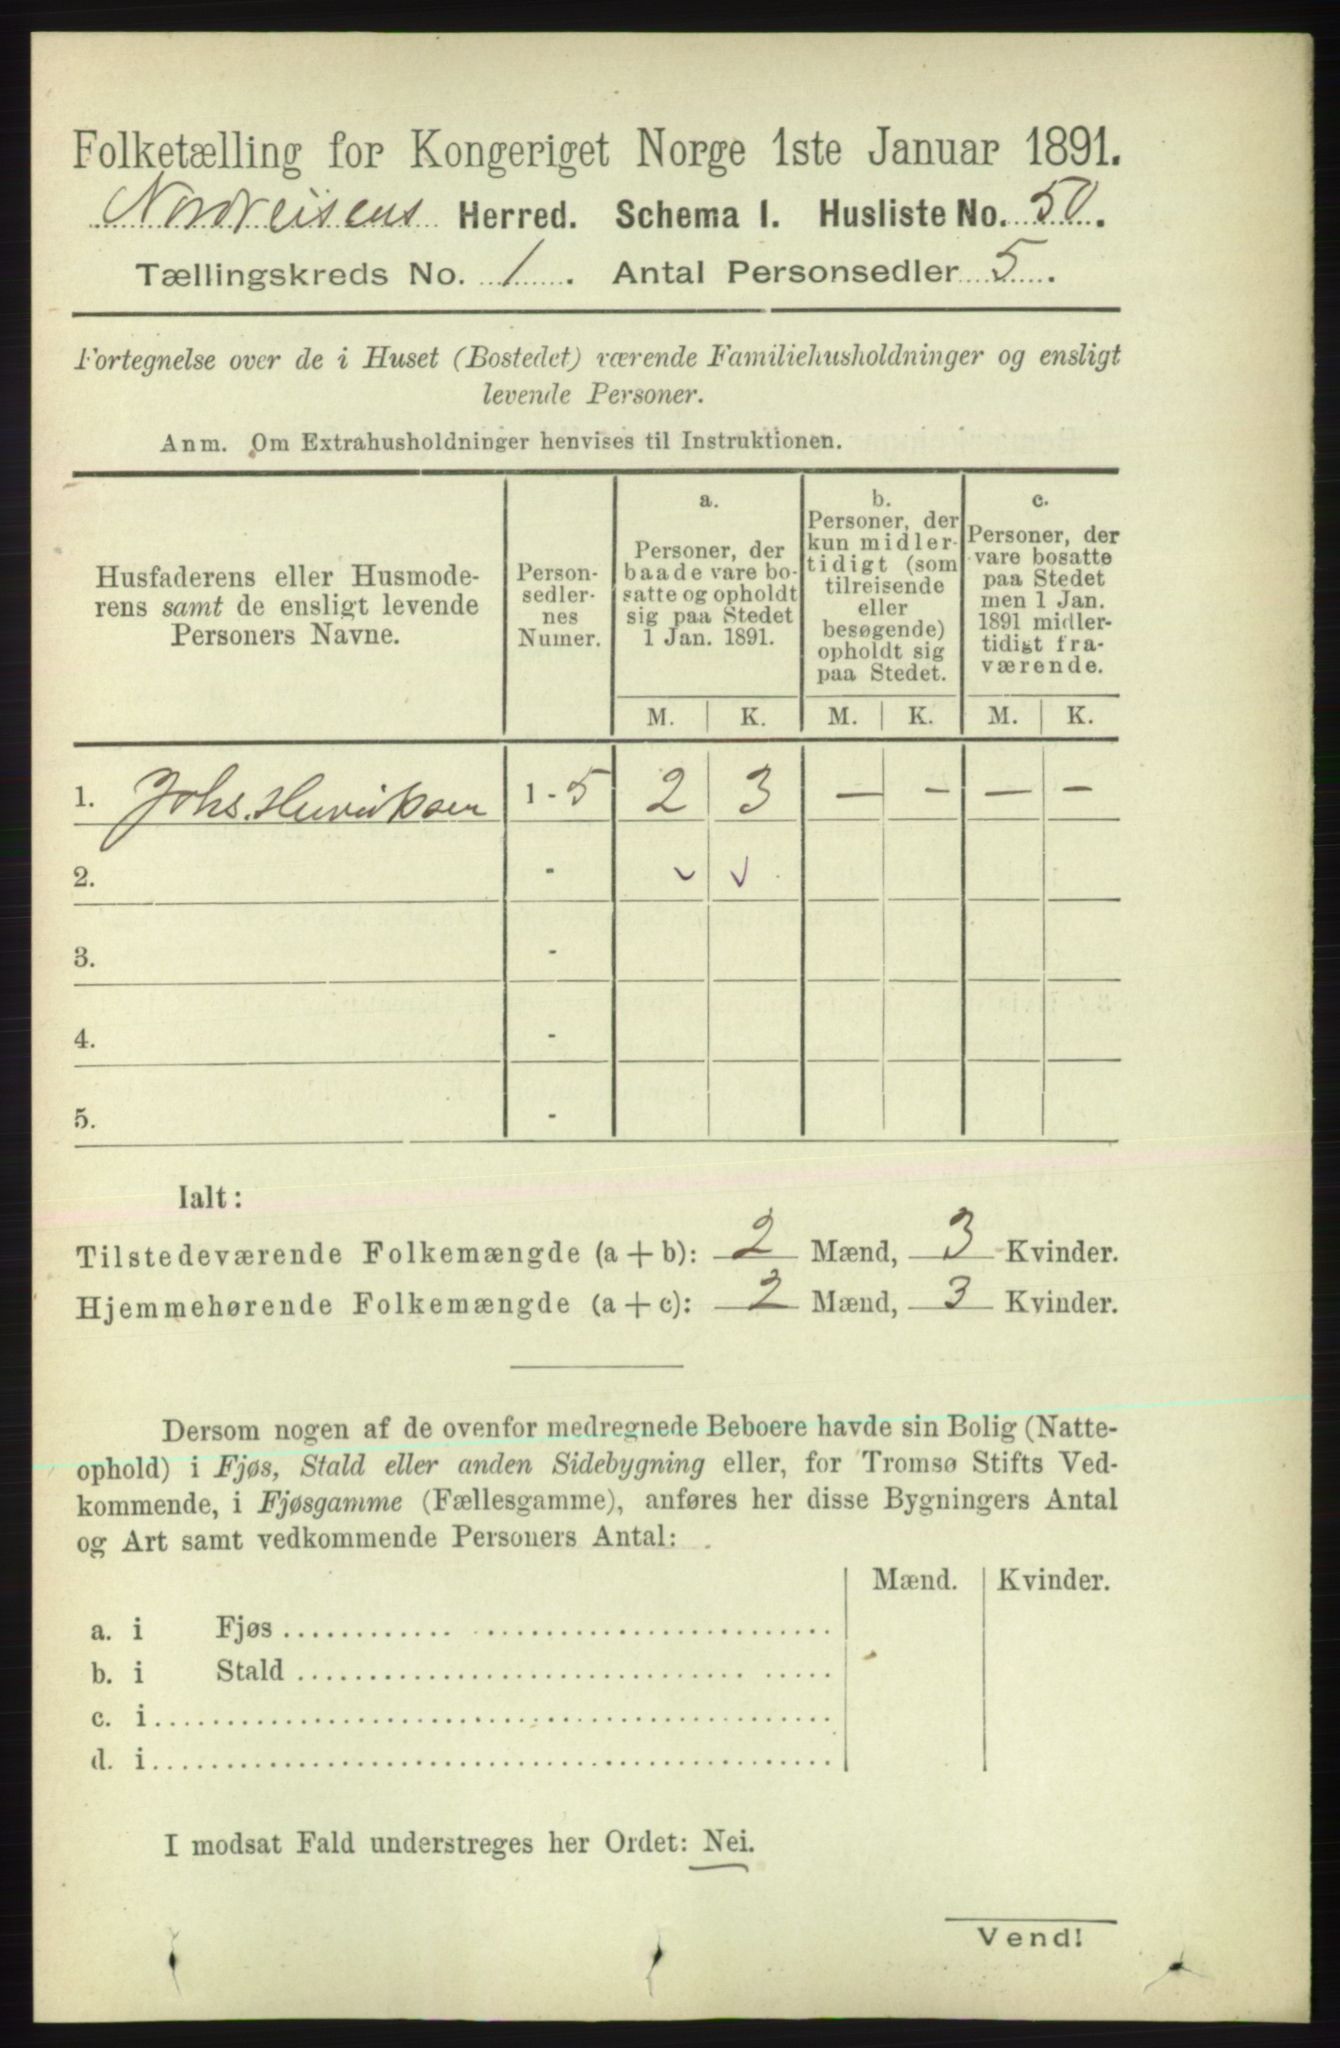 Folketælling for Kongeriget Norge 1ste Januar 1891.
Nordreisens Herred. Schema I. Husliste No. 50.
Tællingskreds No. 1. Antal Personsedler 5.
Fortegnelse over de i Huset (Bostedet) værende Familiehusholdninger og ensligt
levende Personer.
Anm. Om Extrahusholdninger henvises til Instruktionen.
Husfaderens eller Husmode-
rens samt de ensligt levende
Personers Navne.
Person-
sedler-
nes
Numer.
a.
Personer, der
baade vare bo-
satte og opholdt
sig paa Stedet
1 Jan. 1891.
b.
Personer, der
kun midler-
tidigt (som
tilreisende
eller
besøgende)
opholdt sig
paa Stedet.
c.
Personer, der
vare bosatte
paa Stedet
men 1 Jan.
1891 midler-
tidigt fra-
værende.
M. K. M. K. M. K.
1. Johs. Henriksen 1 - 5 2 3 — - — -
2. - ✓ ✓
3. -
4. -
5. -
Ialt:
Tilstedeværende Folkemængde (a + b): 2 Mænd, 3 Kvinder.
Hjemmehørende Folkemængde (a + c): 2 Mænd, 3 Kvinder.
Dersom nogen af de ovenfor medregnede Beboere havde sin Bolig (Natte-
ophold) i Fjøs, Stald eller anden Sidebygning eller, for Tromsø Stifts Ved-
kommende, i Fjøsgamme (Fællesgamme), anføres her disse Bygningers Antal
og Art samt vedkommende Personers Antal:
Mænd. Kvinder.
a. i Fjøs
b. i Stald
c. i
d. i
I modsat Fald understreges her Ordet: Nei.
Vend!